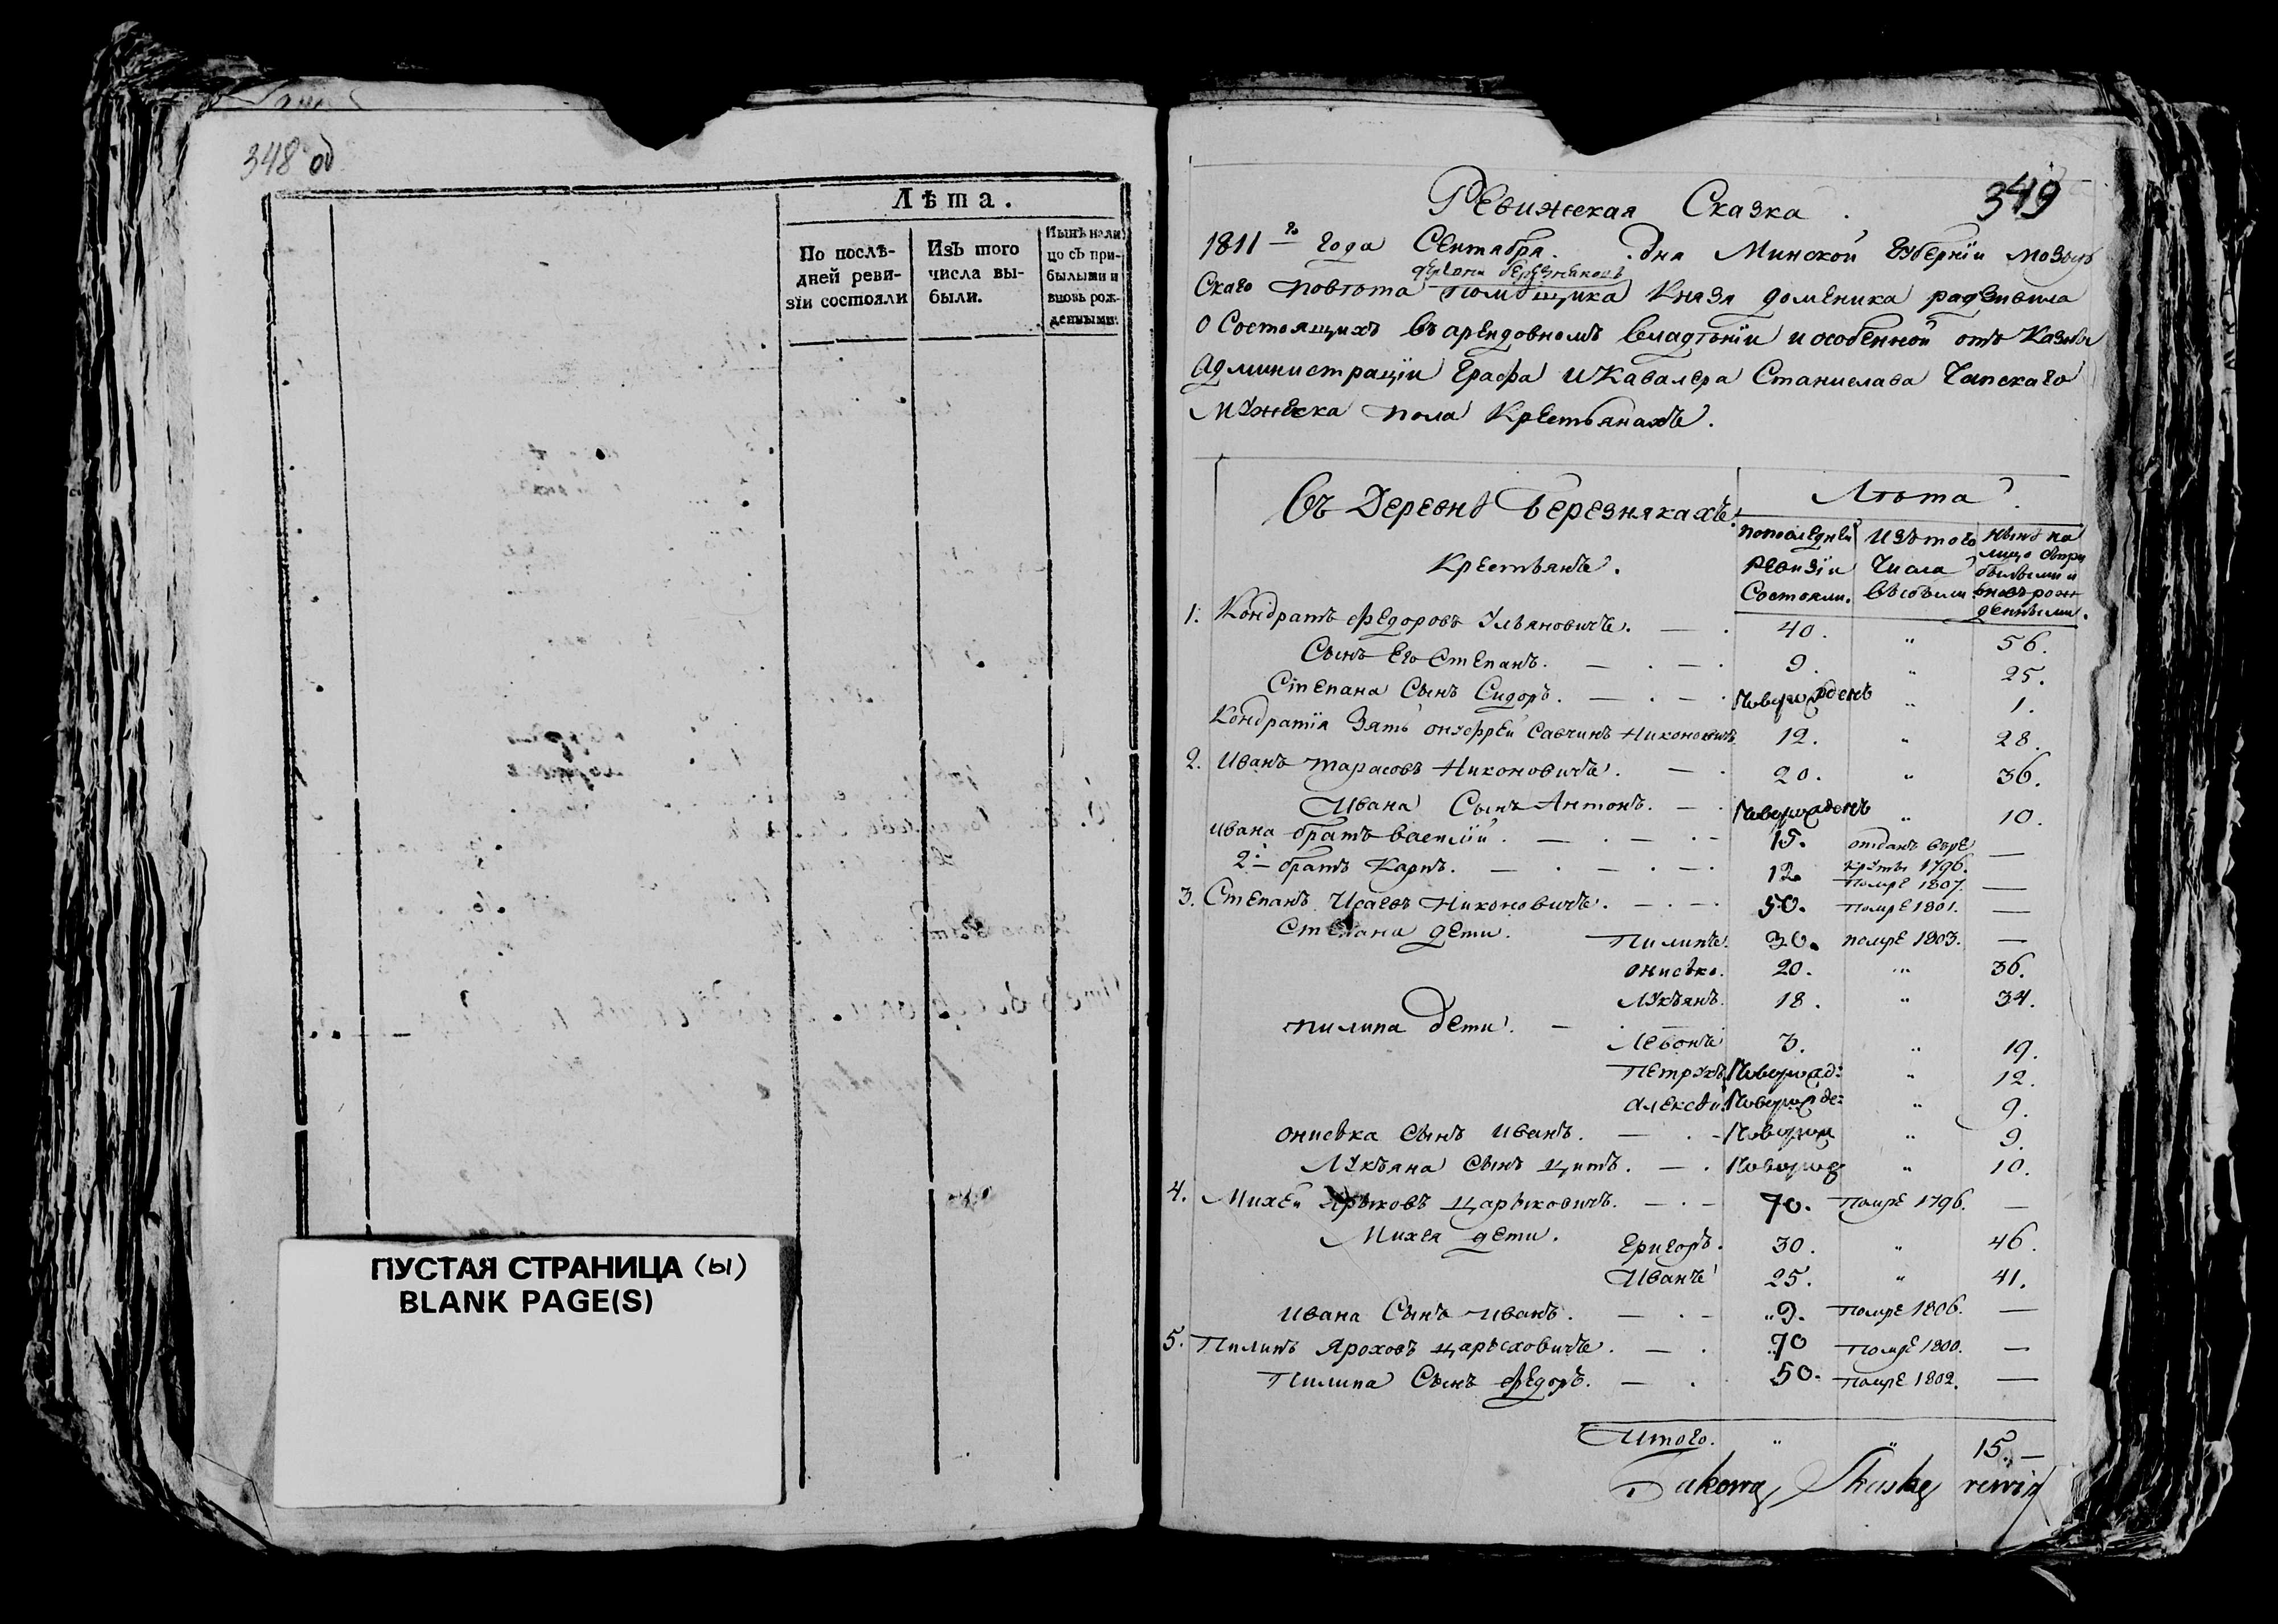 348 об
Лѣта.
По послѣ-
дней реви-
зіи состояли
Изъ того
числа вы-
были.
Нынѣ нали
цо съ при-
былыми и
вновь рож-
денными.
ПУСТАЯ СТРАНИЦА (ы)
BLANK PAGE(S)
349
Ревижская Сказка.
1811 го года Сентября. дня Минской Губерніи Мозыр
деревни Березняковъ
Скаго повѣта помѣщика Князя Доменика радзивила
о Состоящихъ въ арендовномъ владѣніи и особенной отъ Казны
Администраціи Графа и Кавалера Станислава Чапскаго
мужеска пола Крестьянахъ.
Въ Деревнѣ Березнякахъ.
Крестьянъ.
Лѣта
попоследней
Ревизіи
Состояли.
Изътого
Числа
выбыли
нынѣ на
лицо спри
былыми и
вновьрож
денными.
1. Кондратъ Федоровъ Ульяновичъ. 40. " 56.
Сынъ Его Степанъ. 9. " 25.
Степана Сынъ Сидоръ. Новорожденъ " 1.
Кондратія Зять онуфрей Савчинъ Никоновичъ 12. " 28.
2. Иванъ тарасовъ Никоновичъ. 20. " 36.
Ивана Сынъ Антонъ. Новорожденъ " 10.
ивана братъ василій. 15. отданъ врЕ
круты 1796. —
2й братъ Карпъ. 12. помрЕ 1807. —
3. Степанъ Исаевъ Никоновичъ. 50. помрЕ 1801. —
Степана дети. Пилипъ. 30. помрЕ 1803. —
онисько. 20. " 36.
Лукьянъ. 18. " 34.
пилипа дети. Левонъ 3. " 19.
Петрукъ Новорожд: " 12.
алексѣй Новорожде: " 9.
ониська Сынъ Иванъ. Новорож " 9.
Лукьяна Сынъ цитъ. Новорож " 10.
4. Михей Ярыковъ царыковичъ. 70. помрЕ 1796. —
Михея дети. Григоръ. 30. " 46.
Иванъ 25. " 41.
ивана Сынъ иванъ. 9. помрЕ 1806. —
5. Пилипъ Яроховъ царыховичъ. 70 помрЕ 1800. —
Пилипа Сынъ Федоръ. 50. помрЕ 1802. —
Итого. " " 15. —
Takową Skaskę